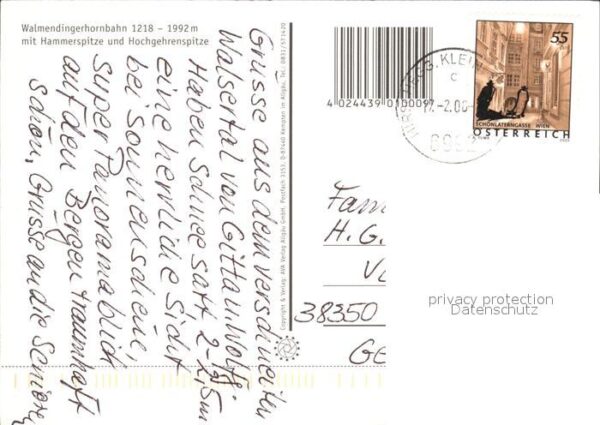 Walmendingerhornbahn 1218 – 1992 m
mit Hammerspitze und Hochgehrenspitze
Grüsse aus dem verschneiten
Walsertal von Gitta u. Wolfg.
Haben Schnee satt 2-2,5m
eine herrliche Sicht
bei Sonnenschein,
super Panoramablick
auf den Bergen traumhaft
schön, Grüsse an die Senioren
Copyright & Verlag: AVA Verlag Allgäu GmbH, Postfach 3153, D-87440 Kempten im Allgäu, Tel.: 0831/571420
4 024439 010009
KLEIN
C
-2.00
55
SCHÖNLATERNGASSE WIEN
ÖSTERREICH
Fam
H. G.
38350
GE
privacy protection
Datenschutz